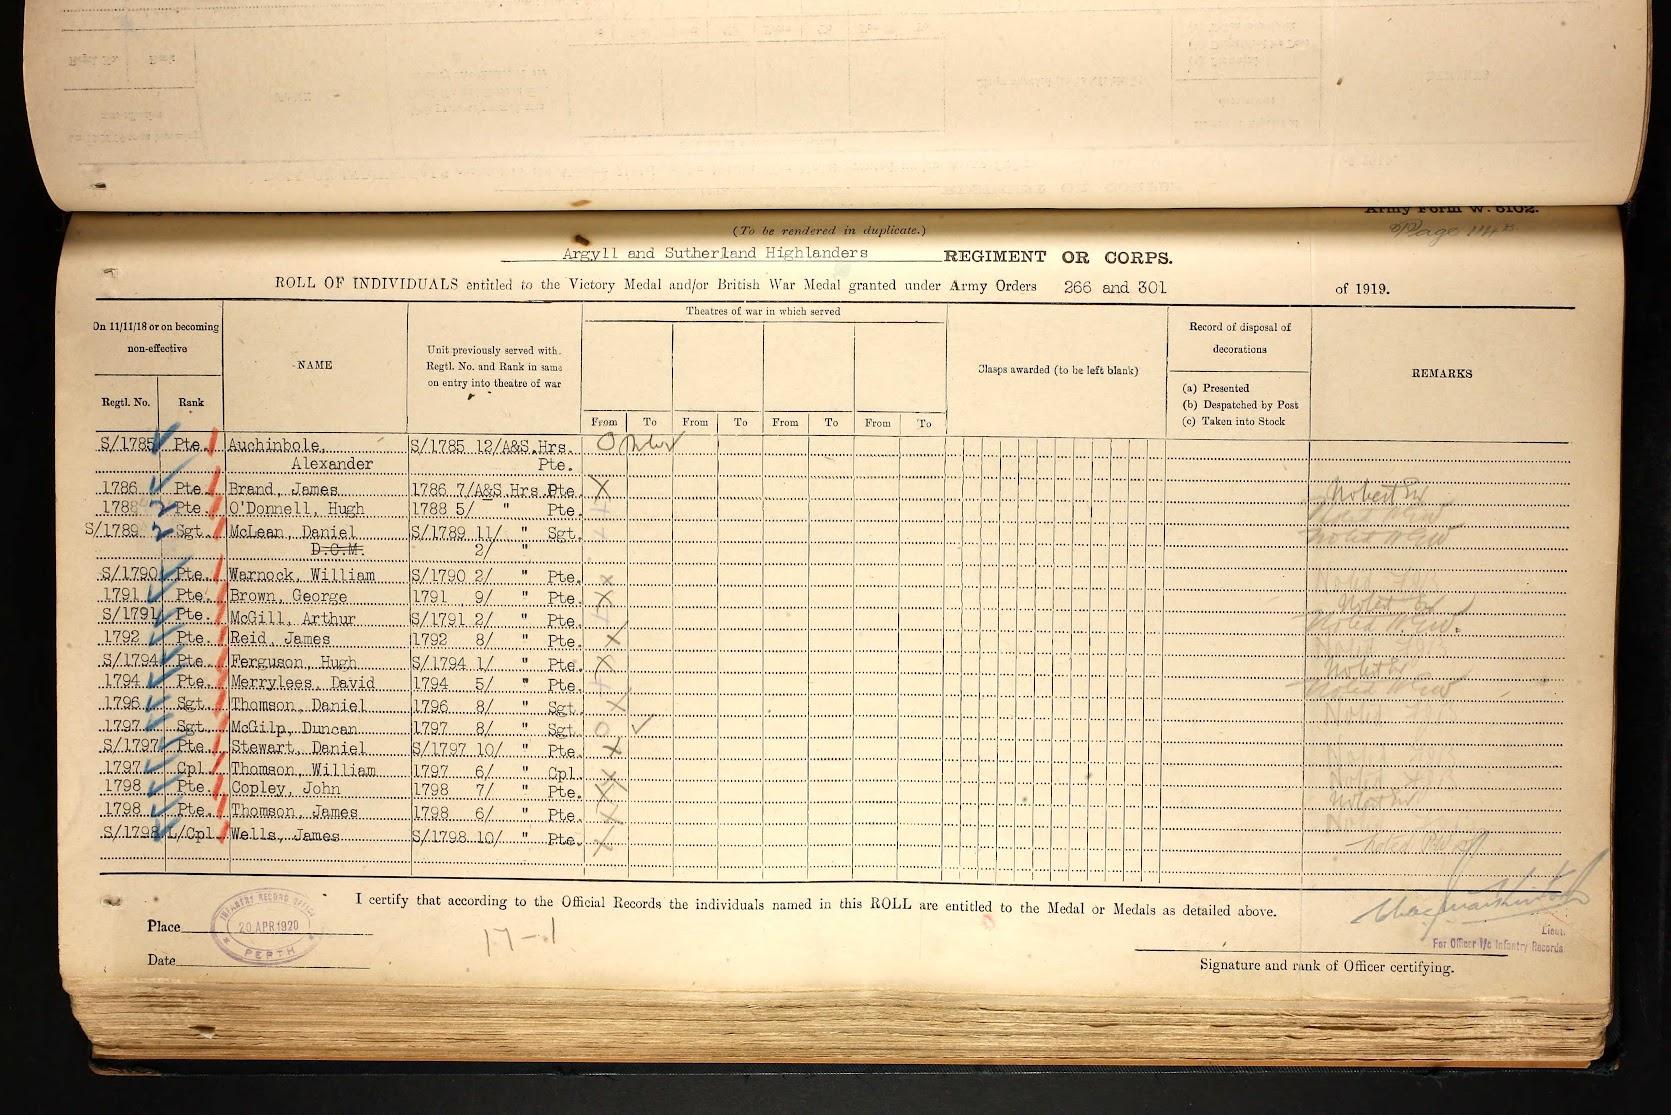 Army Form W. 5102.
Page 114
(To be rendered in duplicate.)
Argyll and Sutherland Highlanders REGIMENT OR CORPS.
ROLL OF INDIVIDUALS entitled to the Victory Medal and/or British War Medal granted under Army Orders 266 and 301 of 1919.
On 11/11/18 or on becoming non-effective
Regtl. No.
Rank
NAME
Unit previously served with.
Regtl. No. and Rank in same
on entry into theatre of war
Theatres of war in which served
From To From To From To From To
Clasps awarded (to be left blank)
Record of disposal of
decorations
(a) Presented
(b) Despatched by Post
(c) Taken into Stock
REMARKS
S/1785 Pte. Auchinbole, S/1785 12/A&S.Hrs.
Alexander Pte.
1786 Pte. Brand, James 1786 7/A&S Hrs Pte. X
1788 Pte. O'Donnell, Hugh 1788 5/ " Pte.
S/1789 Sgt. McLean, Daniel S/1789 11/ " Sgt.
D.C.M. 2/ "
S/1790 Pte. Warnock, William S/1790 2/ " Pte. X
1791 Pte. Brown, George 1791 9/ " Pte. X
S/1791 Pte. McGill, Arthur S/1791 2/ " Pte.
1792 Pte. Reid, James 1792 8/ " Pte. X
S/1794 Pte. Ferguson, Hugh S/1794 1/ " Pte. X
1794 Pte. Merrylees, David 1794 5/ " Pte.
1796 Sgt. Thomson, Daniel 1796 8/ " Sgt. X
1797 Sgt. McGilp, Duncan 1797 8/ " Sgt. O
S/1797 Pte. Stewart, Daniel S/1797 10/ " Pte. X
1797 Cpl. Thomson, William 1797 6/ " Cpl. X
1798 Pte. Copley, John 1798 7/ " Pte. X
1798 Pte. Thomson, James 1798 6/ " Pte. X
S/1798 L/Cpl. Wells, James S/1798 10/ " Pte. X
I certify that according to the Official Records the individuals named in this ROLL are entitled to the Medal or Medals as detailed above.
Place
INFANTRY RECORD OFFICE
20 APR 1920
PERTH
17-1
Lieut.
For Officer I/c Infantry Records
Date
Signature and rank of Officer certifying.